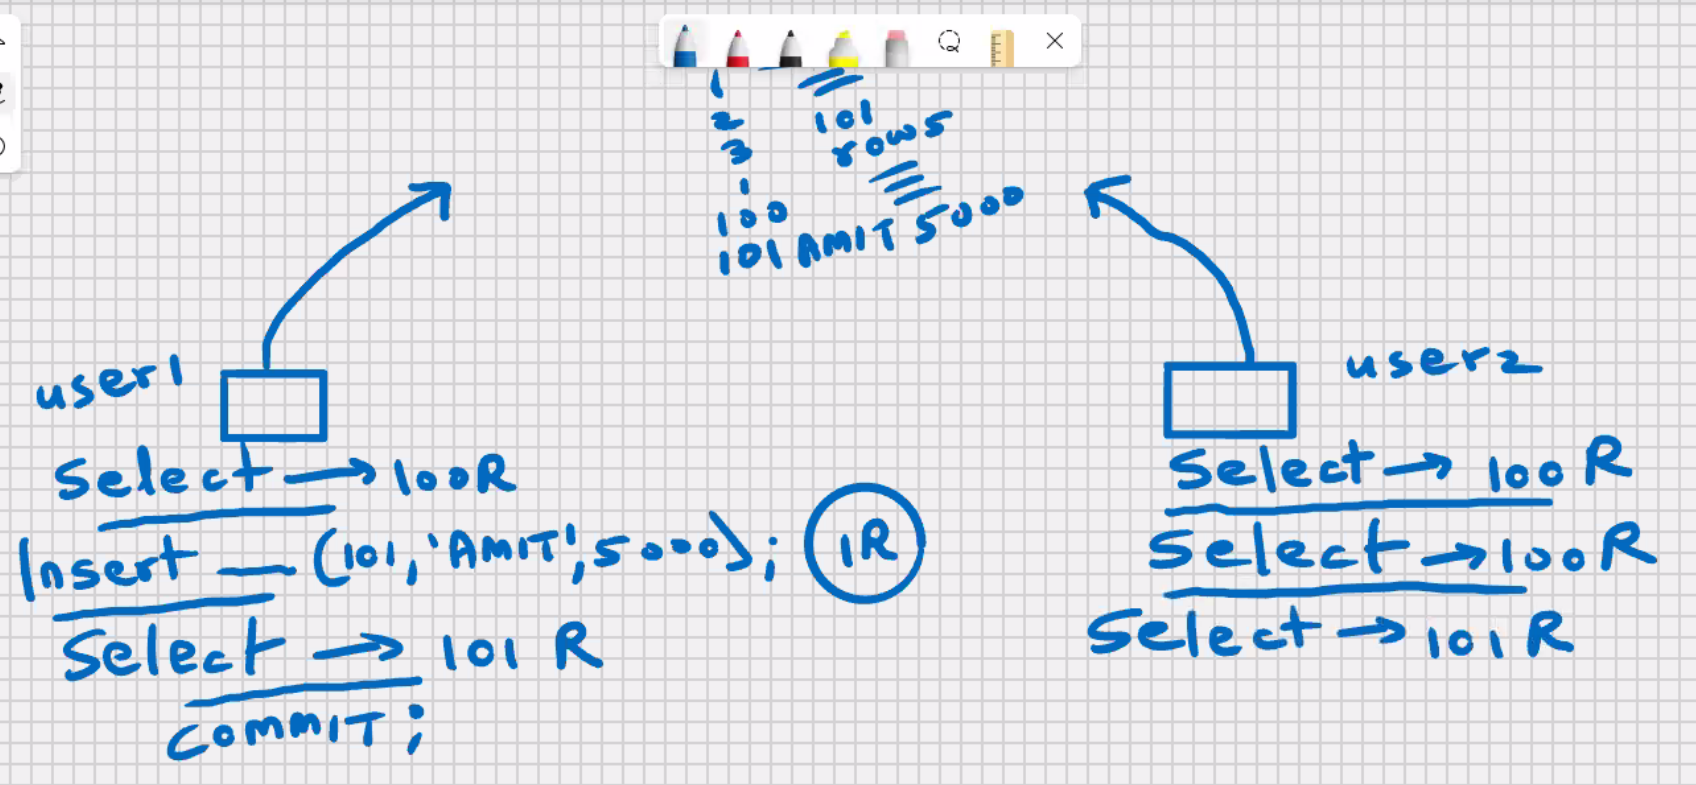 1
2
3
101
rows
100
101 AMIT 5000
user1
Select → 100R
Insert — (101, 'AMIT', 5000); 1R
Select → 101 R
COMMIT;
user2
Select → 100 R
Select → 100 R
Select → 101 R